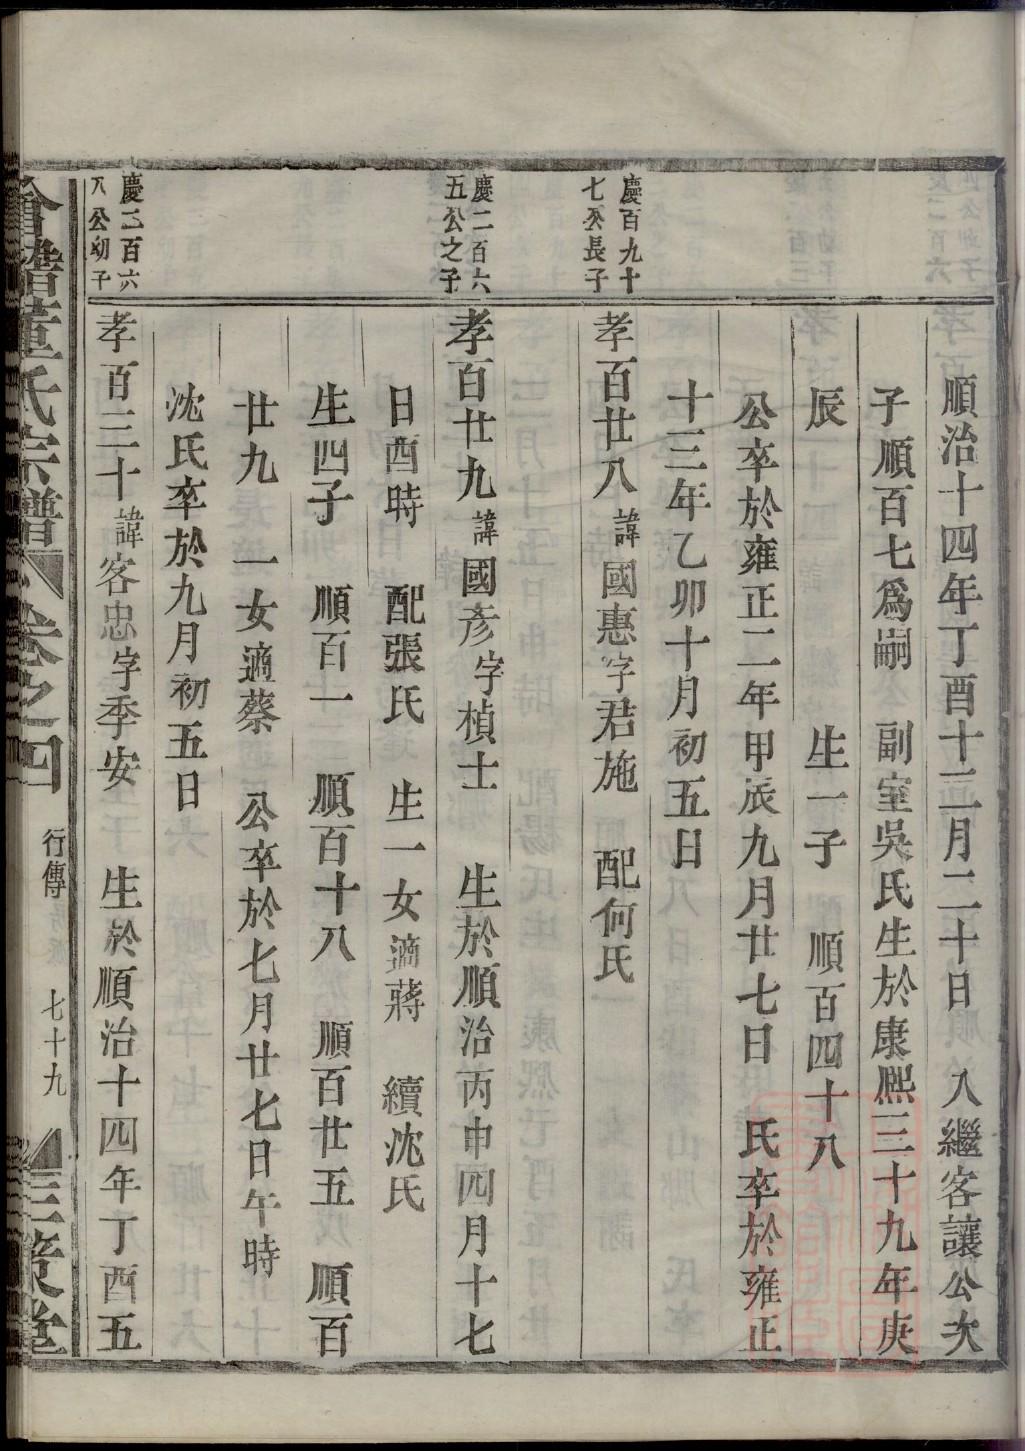 順治十四年丁酉十二月二十日　入繼客讓公次
子順百七爲嗣　副室吳氏生於康熙三十九年庚
辰　生一子　順百四十八
公卒於雍正二年甲辰九月廿七日　氏卒於雍正
十三年乙卯十月初五日
慶百九十
七公長子
孝百廿八諱國惠字君施　配何氏
慶二百六
五公之子
孝百廿九諱國彥字楨士　生於順治丙申四月十七
日酉時　配張氏　生一女適蔣　續沈氏
生四子　順百一　順百十八　順百廿五　順百
廿九　一女適蔡　公卒於七月廿七日午時
沈氏卒於九月初五日
慶二百六
八公幼子
孝百三十諱客忠字季安　生於順治十四年丁酉五
會稽董氏宗譜　卷之四　行傳　七十九　三策堂